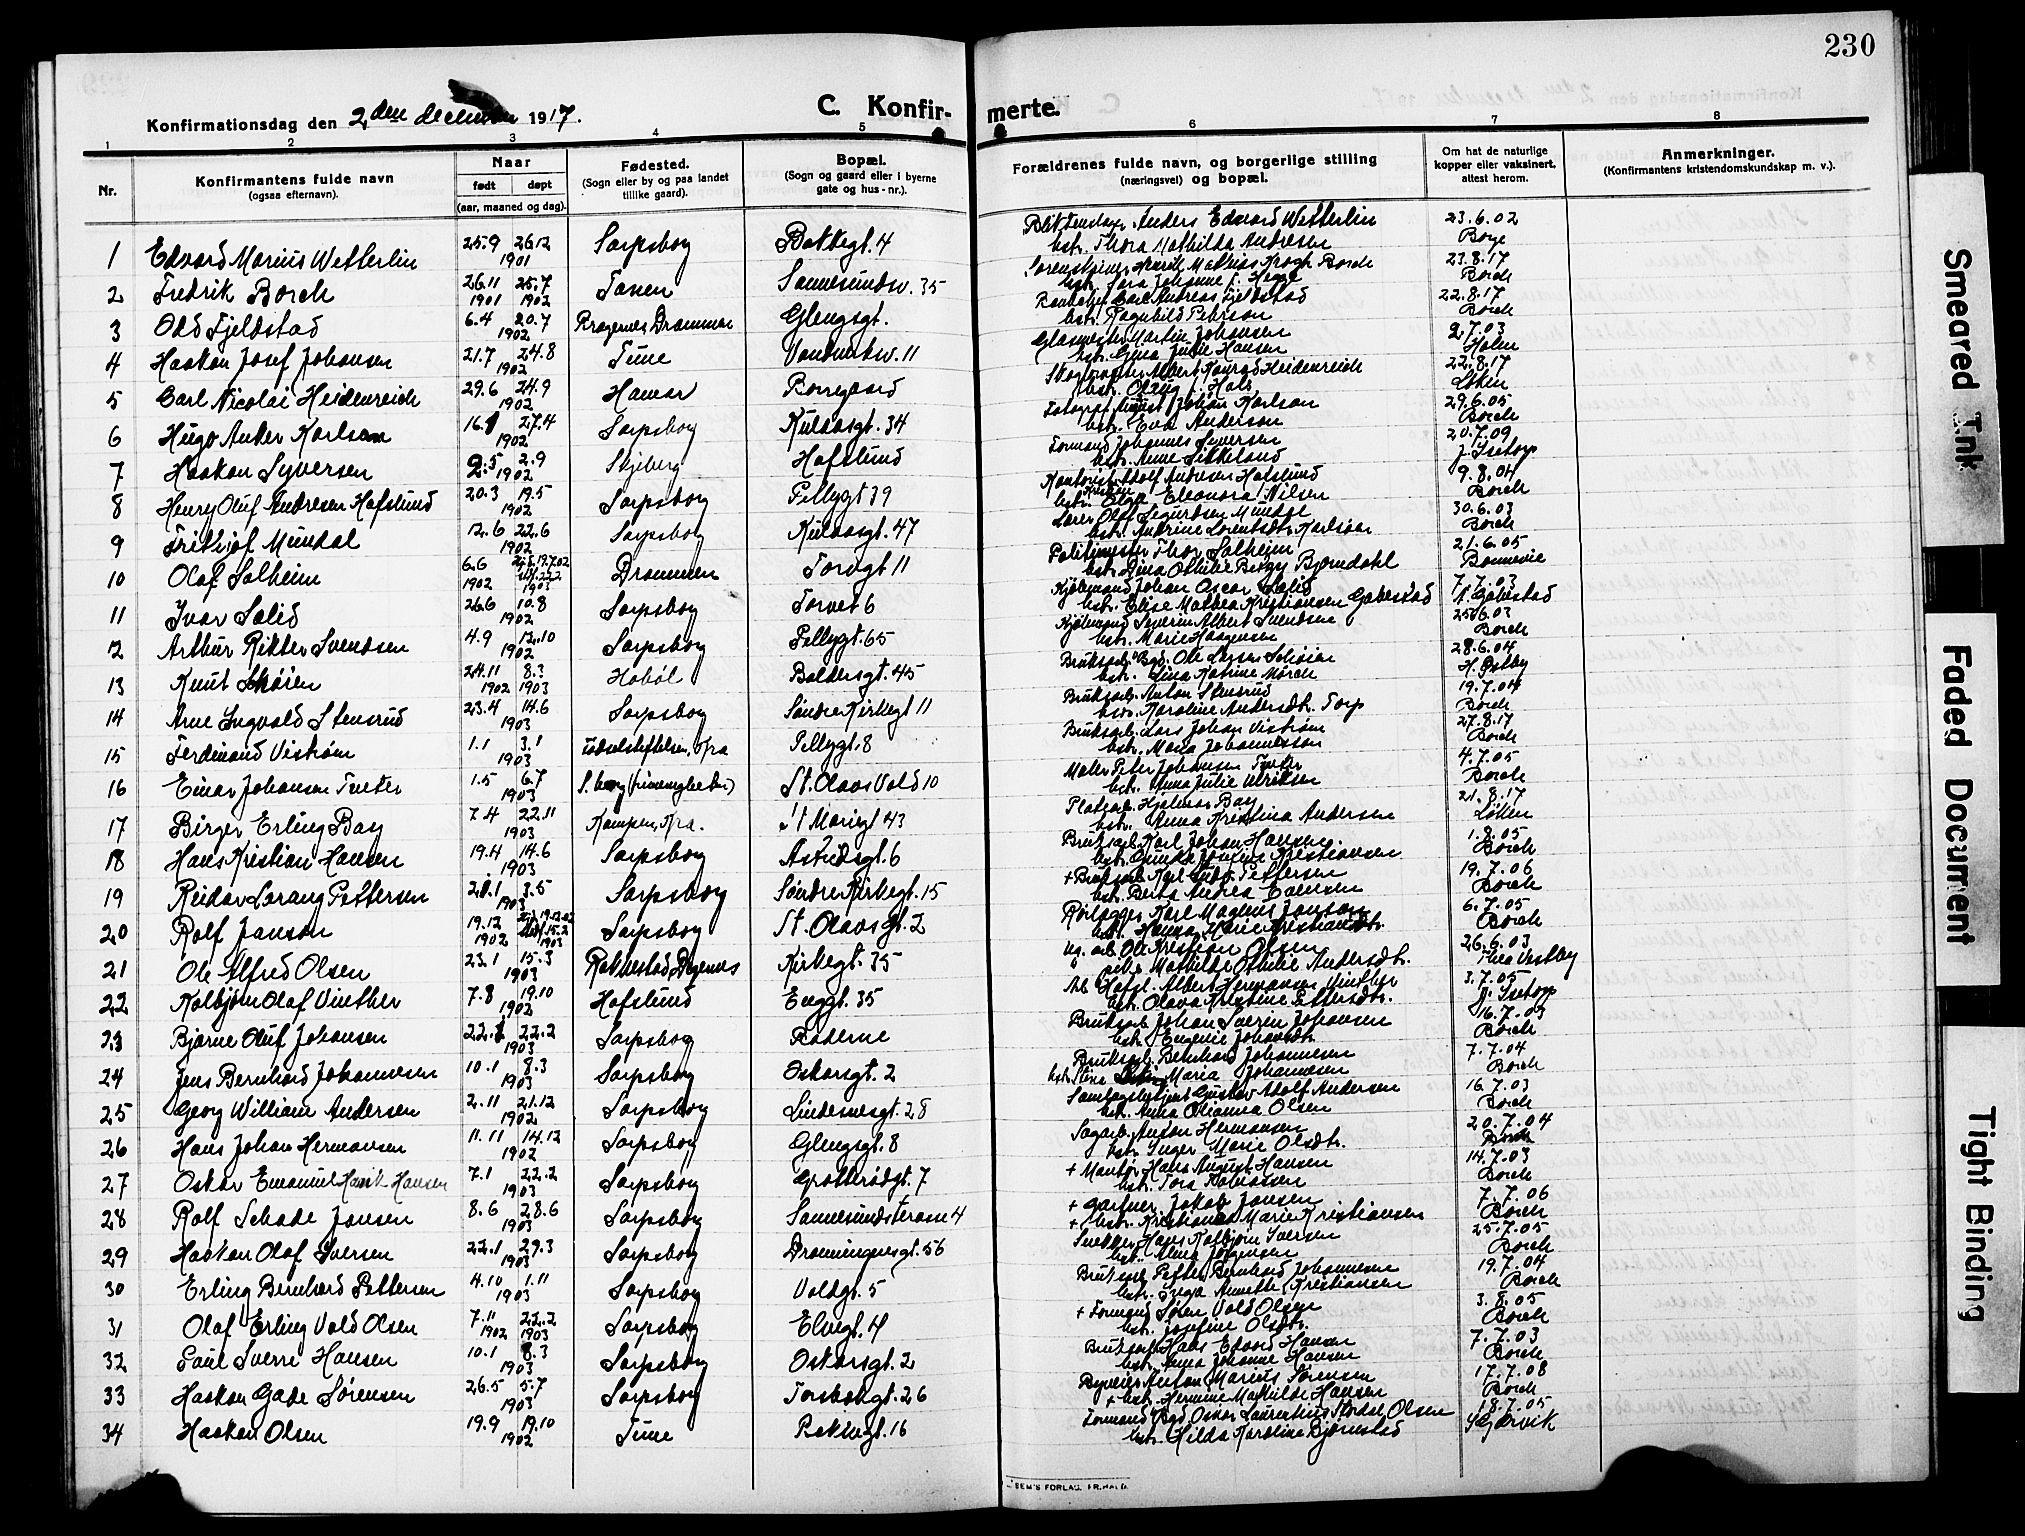 230
C. Konfir- merte.
Konfirmationsdag den 2den december 1917.
1 2 3 4 5 6 7 8
Nr.
Konfirmantens fulde navn
(ogsaa efternavn).
Naar
født døpt
(aar, maaned og dag).
Fødested.
(Sogn eller by og paa landet
tillike gaard).
Bopæl.
(Sogn og gaard eller i byerne
gate og hus-nr.).
Forældrenes fulde navn, og borgerlige stilling
(næringsvei) og bopæl.
Om hat de naturlige
kopper eller vaksinert,
attest herom.
Anmerkninger.
(Konfirmantens kristendomskundskap m. v.).
1 Edvard Marius Wetterlin 25.9 26.12 1901 Sarpsborg Bakkegt. 4 Anders Edvard Wetterlin hstr. Thora Mathilda Andresen 23.6.02
2 Fredrik Borch 26.11 1901 25.7 1902 Sannesundsv. 35 Sorenskriver Henrik Mathias Krogh Borch 23.8.17 Borch
3 Odd Fjeldstad 6.4 20.7 1902 Bragernes Drammen Glengsgt. Carl Andreas Fjeldstad hstr. Ragnhild Peterson 22.8.17 Borch
4 Haakon Josef Johansen 21.7 24.8 1902 Tune Vandverksv. 11 Glasmester Martin Johansen hstr. Gina Julie Hansen 2.7.03 Holm
5 Carl Nicolai Heidenreich 29.6 24.9 1902 Hamar Borregaard Albert Konrad Heidenreich 22.8.17 Løken
6 Hugo Anker Karlsen 16.1 27.4 1902 Sarpsborg Kulaasgt. 34 Fotograf August Johan Karlson hstr. Eva Anderson 29.6.05 Borch
7 Haakon Syversen 2.5 2.9 1902 Skjeberg Hafslund Formand Johannes Syversen 20.7.09 J. Isetorp
8 Henry Oluf Andresen Hafslund 20.3 19.5 1902 Sarpsborg Pellygt 39 Adolf Andresen Hafslund hstr. Olga Eleonora Nilsen 9.8.04 Borch
9 Fritzjof Mundal 12.6 22.6 1902 Sarpsborg Kulaasgt. 47 Lærer Olaf Sigurdsen Mundal hstr. Andrine Lorentsdtr. Karlsen 30.6.03 Borch
10 Olaf Solheim 6.6 1902 Drammen Torvgt 11 Politimester Thor Solheim hstr. Gina Othilie Bergg Bjørndahl 21.6.05 Bonnevie
11 Ivar Solid 26.6 10.8 1902 Sarpsborg Torvet 6 Kjøbmand Johan Oscar Solid hstr. Elise Mathea Kristiansen Gabestad 7.7.03
12 Arthur Rikter Svendsen 4.9 12.10 1902 Sarpsborg Pellygt. 65 Kjøbmand Severin Albert Svendsen hstr. Marie Haagensen 25.6.03 Borch
13 Knut Skøien 24.11 1902 8.3 1903 Hobøl Baldersgt. 45 Ole Larsen Schøien hstr. Lina Katrine Mørch 28.6.04 H. Østby
14 Arne Ingvald Stensrud 23.4 14.6 1903 Sarpsborg Søndre Kirkegt 11 Bruksarb. Anton Stensrud hstr. Karoline Andersdtr. Torp 19.7.04 Borch
15 Ferdinand Vistrøm 1.1 3.1 1903 Fødselstiftelsen, Kra Pellygt. 8 Bruksarb. Lars Johan Vistrøm hstr. Maria Johannesson 27.8.17 Borch
16 Einar Johansen Tveter 1.5 6.7 1903 St. Olavs Vold 10 Maler Peter Johansen Tveter hstr. Anna Julie Ulriksen 4.7.05 Borch
17 Birger Erling Bay 7.4 22.11 1903 Kampen, Kra. St Mariegt 43 Hjalmar Bay hstr. Anna Kristina Andersen 21.8.17 Løken
18 Hans Kristian Hansen 19.4 14.6 1903 Sarpsborg Astridsgt. 6 Bruksarb. Karl Johan Hansen hstr. Gunda Josefine Kristiansen 1.8.05 Borch
19 Reidar Lorang Pettersen 21.1 3.5 1903 Sarpsborg Søndre Kirkegt. 15 + Bruksarb. Karl Ludv. Pettersen hstr. Berta Andrea Evensen 19.7.06 Borch
20 Rolf Janson 19.12 1902 Sarpsborg St. Olavs gt. 2 Rørlægger Karl Magnus Janson hstr. Hanna Marie Kristiansdtr. 6.7.05 Borch
21 Ole Alfred Olsen 23.1 15.3 1903 Rakkestad, Degernes Kirkegt. 35 Ug. arb. Ole Kristian Olsen Mathilde Othilie Andersdtr. 26.6.03 Thea Vestby
22 Kolbjørn Olaf Vinther 7.8 19.10 1902 Hafslund Enggt. 35 Arb. Hafsl. Albert Hermansen Vinther hstr. Olava Kristine Pettersdtr. 3.7.05 J. Isetorp
23 Bjarne Oluf Johansen 22.1 22.2 1903 Sarpsborg Raderne Bruksarb. Johan Sverin Johansen hstr. Eugenie Johansdtr. 16.7.03 Borch
24 Jens Bernhard Johannesen 10.1 8.3 1903 Sarpsborg Oskarsgt. 2 Bruksarb. Bernhard Johannesen hstr. Stina Maria Johannesen 7.7.04 Borch
25 Georg William Andersen 2.11 21.12 1902 Sarpsborg Lindemesgt. 28 Gustav Adolf Andersen hstr. Anna Olianna Olsen 16.7.03 Borch
26 Hans Johan Hermansen 11.11 14.12 1902 Sarpsborg Glengsgt. 8 Sagarb. Anton Hermansen hstr. Inger Marie Olsdtr. 20.7.04 Borch
27 Oskar Emanuel Hansen 7.1 22.2 1903 Sarpsborg Grotterødgt. 7 + Montør Hans August Hansen hstr. Tora Tobiassen 14.7.03 Borch
28 Rolf Schade Jansen 8.6 28.6 1903 Sarpsborg Sannesundsterasse 4 + Gartner Jakob Jansen + hstr. Kristianna Marie Kristiansen 7.7.06 Borch
29 Haakon Olaf Iversen 22.1 29.3 1903 Sarpsborg Dronningensgt. 56 Snekker Hans Kolbjørn Iversen hstr. Alma Jørgensen 25.7.05 Borch
30 Erling Bernhard Pettersen 4.10 1.11 1903 Sarpsborg Voldgt. 5 Bruksarb. Petter Bernhard Johannesen hstr. Inga Annette Kristiansen 19.7.04 Borch
31 Olaf Erling Vold Olsen 7.11 1902 22.2 1903 Sarpsborg Elvegt. 4 + Formand Søren Vold Olsen hstr. Josefine Olsdtr. 3.8.05 Borch
32 Paul Sverre Hansen 10.1 8.3 1903 Sarpsborg Oskarsgt. 2 Bruksarb. Hans Edvard Hansen hstr. Anna Johanne Hansen 7.7.03 Borch
33 Haakon Gade Sørensen 26.5 5.7 1903 Sarpsborg Torsbækgt. 26 Anton Marius Sørensen + hstr. Hermine Mathilde Hansen 17.7.08 Borch
34 Haakon Olsen 19.9 19.10 1902 Tune Bakkegt. 16 Formand Bgd Oskar Laurentius Stordal Olsen hstr. Hilda Karoline Bjørnstad 18.7.05
SEM'S FORLAG, FR.HALD.
Smeared Ink
Faded Document
Tight Binding